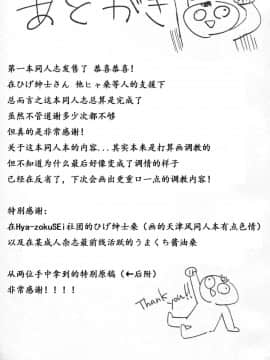 あとがき
第一本同人志发售了 恭喜恭喜!
在ひげ紳士さん 他ヒャ桑等人的支援下
总而言之这本同人志总算是完成了
虽然不管道谢多少次都不够
但真的是非常感谢!
关于这本同人本的内容...其实本来是打算画调教的
但不知道为什么最后好像变成了调情的样子
已经在反省了,下次会画出更重口一点的调教内容!
特別感谢:
在Hya-zokuSEi社团的ひげ绅士桑(画的天津风同人本有点色情)
以及在某成人杂志最前线活跃的うまくち醤油桑
从两位手中拿到的特别原稿(←后附)
非常感谢!!!!
Thank you!!